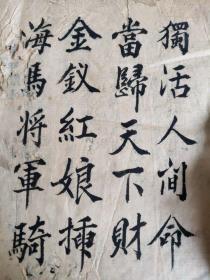 獨活人间命
當歸天下財
金釵紅娘插
海馬将軍騎